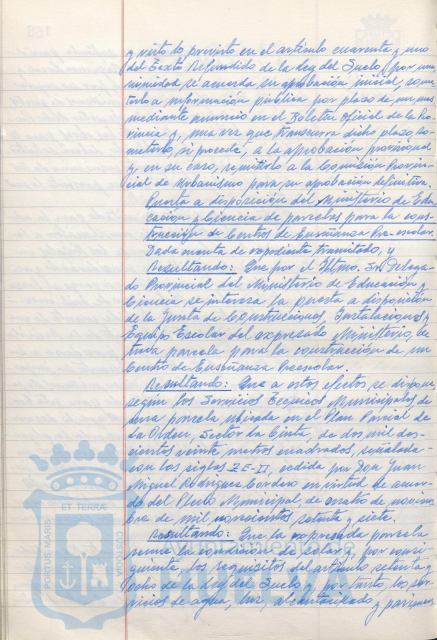 y visto lo previsto en el artículo cuarenta y uno
del Texto Refundido de la Ley del Suelo, por una-
nimidad, se acuerda su aprobación inicial, some-
terlo a información pública por plazo de un mes
mediante anuncio en el Boletín Oficial de la Pro-
vincia y, una vez que transcurra dicho plazo, so-
meterlo, si procede, a la aprobación provisional
y en su caso, remitirlo a la Comisión Provin-
cial de Urbanismo para su aprobación definitiva.
Puesta a disposición del Ministerio de Edu-
cación y Ciencia de parcelas para la cons-
trucción de Centros de Enseñanza Preescolar.
Dada cuenta de expediente tramitado, y
Resultando: Que por el Iltmo. Sr. Delega-
do Provincial del Ministerio de Educación y
Ciencia se interesa la puesta a disposición
de la Junta de Construcciones, Instalaciones y
Equipo Escolar del expresado Ministerio, de
una parcela para la construcción de un
Centro de Enseñanza Preescolar.
Resultando: Que a estos efectos, se dispone,
según los Servicios Técnicos Municipales de
una parcela, ubicada en el Plan Parcial de
La Orden, Sector La Cinta, de dos mil dos-
cientos veinte metros cuadrados, señalada
con las siglas ZE-II, cedida por Don Juan
Miguel Rodríguez Cordero en virtud de acuer-
do del Pleno Municipal de cuatro de noviem-
bre de mil novecientos setenta y siete.
Resultando: Que la expresada parcela
reúne la condición de solar y, por consi-
guiente, los requisitos del artículo setenta y
ocho de la Ley del Suelo y, por tanto, los ser-
vicios de agua, luz, alcantarillado y pavimen
PORTUS MARIS
ET TERRAE
CUSTODIA